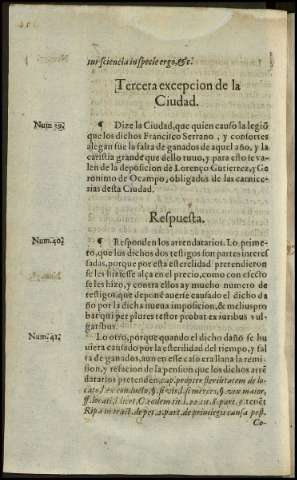 tur scientia in specie ergo, &c.
Tercera excepcion de la
Ciudad.
Num. 39.
¶ Dize la Ciudad, que quien causo la lesiõ
que los dichos Francisco Serrano, y consortes
alegan fue la falta de ganados de aquel año, y la
caristia grande que dello tuuo, y para esto se va-
len de la deposicion de Lorenço Gutierrez, y Ge
ronimo de Ocampo, obligados de las carnice-
rias desta Ciudad.
Respuesta.
Num. 40.
¶ Responden los arrendatarios. Lo prime-
ro, que los dichos dos testigos son partes interes
sadas, porque por esta esterelidad pretendierõ
se les hiziesse alça en el precio, como con efecto
se les hizo, y contra ellos ay mucho numero de
testigos, que deponẽ auerse causado el dicho da
ño por la dicha nueua imposicion, & melius pro
bat qui per plures testes probat ex iuribus vul-
garibus.
Num. 41.
Lo otro, porque quando el dicho daño se hu
uiera causado por la esterilidad del tiempo, y fal
ta de ganados, aun en este caso era llana la remis-
sion, y refacion de la pension que los dichos arrẽ
datarios pretenden, cap. propter sterilitatem de lo-
cato,
ff. locati,
Ripa in tract. de pest. 2. part.
Co-